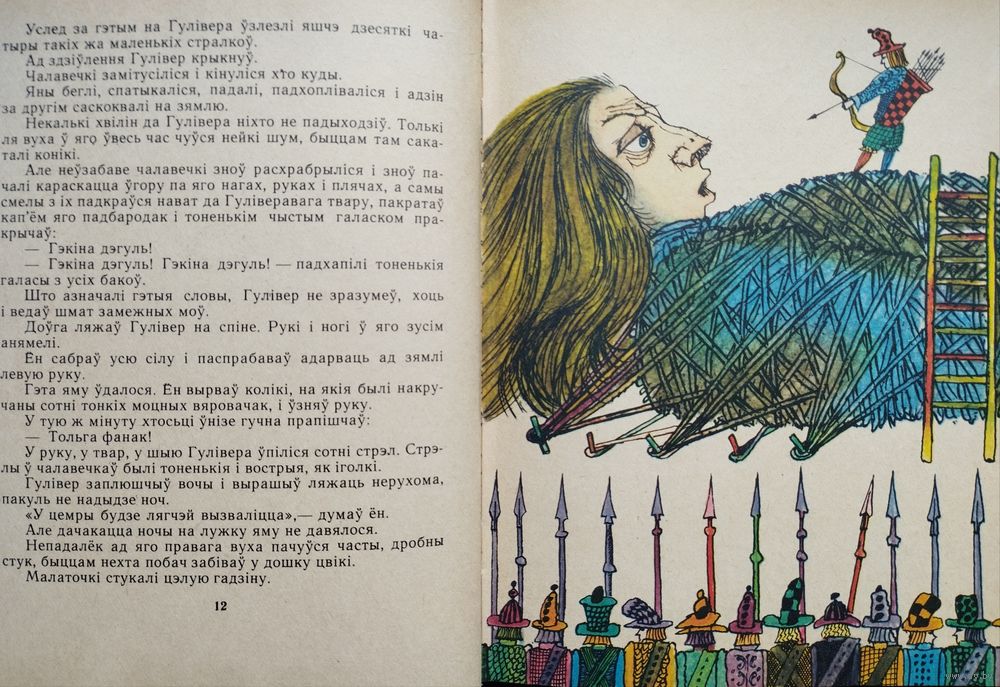 Услед за гэтым на Гулівера ўзлезлі яшчэ дзесяткі ча-
тыры такіх жа маленькіх стралкоў.
Ад здзіўлення Гулівер крыкнуў.
Чалавечкі замітусіліся і кінуліся хто куды.
Яны беглі, спатыкаліся, падалі, падхопліваліся і адзін
за другім саскоквалі на зямлю.
Некалькі хвілін да Гулівера ніхто не падыходзіў. Толькі
ля вуха ў яго ўвесь час чуўся нейкі шум, быццам там сака-
талі конікі.
Але неўзабаве чалавечкі зноў расхрабрыліся і зноў па-
чалі караскацца ўгору па яго нагах, руках і плячах, а самы
смелы з іх падкраўся нават да Гуліверавага твару, пакратаў
кап'ём яго падбародак і тоненькім чыстым галаском пра-
крычаў:
— Гэкіна дэгуль!
— Гэкіна дэгуль! Гэкіна дэгуль! — падхапілі тоненькія
галасы з усіх бакоў.
Што азначалі гэтыя словы, Гулівер не зразумеў, хоць
і ведаў шмат замежных моў.
Доўга ляжаў Гулівер на спіне. Рукі і ногі ў яго зусім
анямелі.
Ён сабраў усю сілу і паспрабаваў адарваць ад зямлі
левую руку.
Гэта яму ўдалося. Ён вырваў колікі, на якія былі накру-
чаны сотні тонкіх моцных вяровачак, і ўзняў руку.
У тую ж мінуту хтосьці ўнізе гучна прапішчаў:
— Тольга фанак!
У руку, у твар, у шыю Гулівера ўпіліся сотні стрэл. Стрэ-
лы ў чалавечкаў былі тоненькія і вострыя, як іголкі.
Гулівер заплюшчыў вочы і вырашыў ляжаць нерухома,
пакуль не надыдзе ноч.
«У цемры будзе лягчэй вызваліцца»,— думаў ён.
Але дачакацца ночы на лужку яму не давялося.
Непадалёк ад яго правага вуха пачуўся часты, дробны
стук, быццам нехта побач забіваў у дошку цвікі.
Малаточкі стукалі цэлую гадзіну.
12